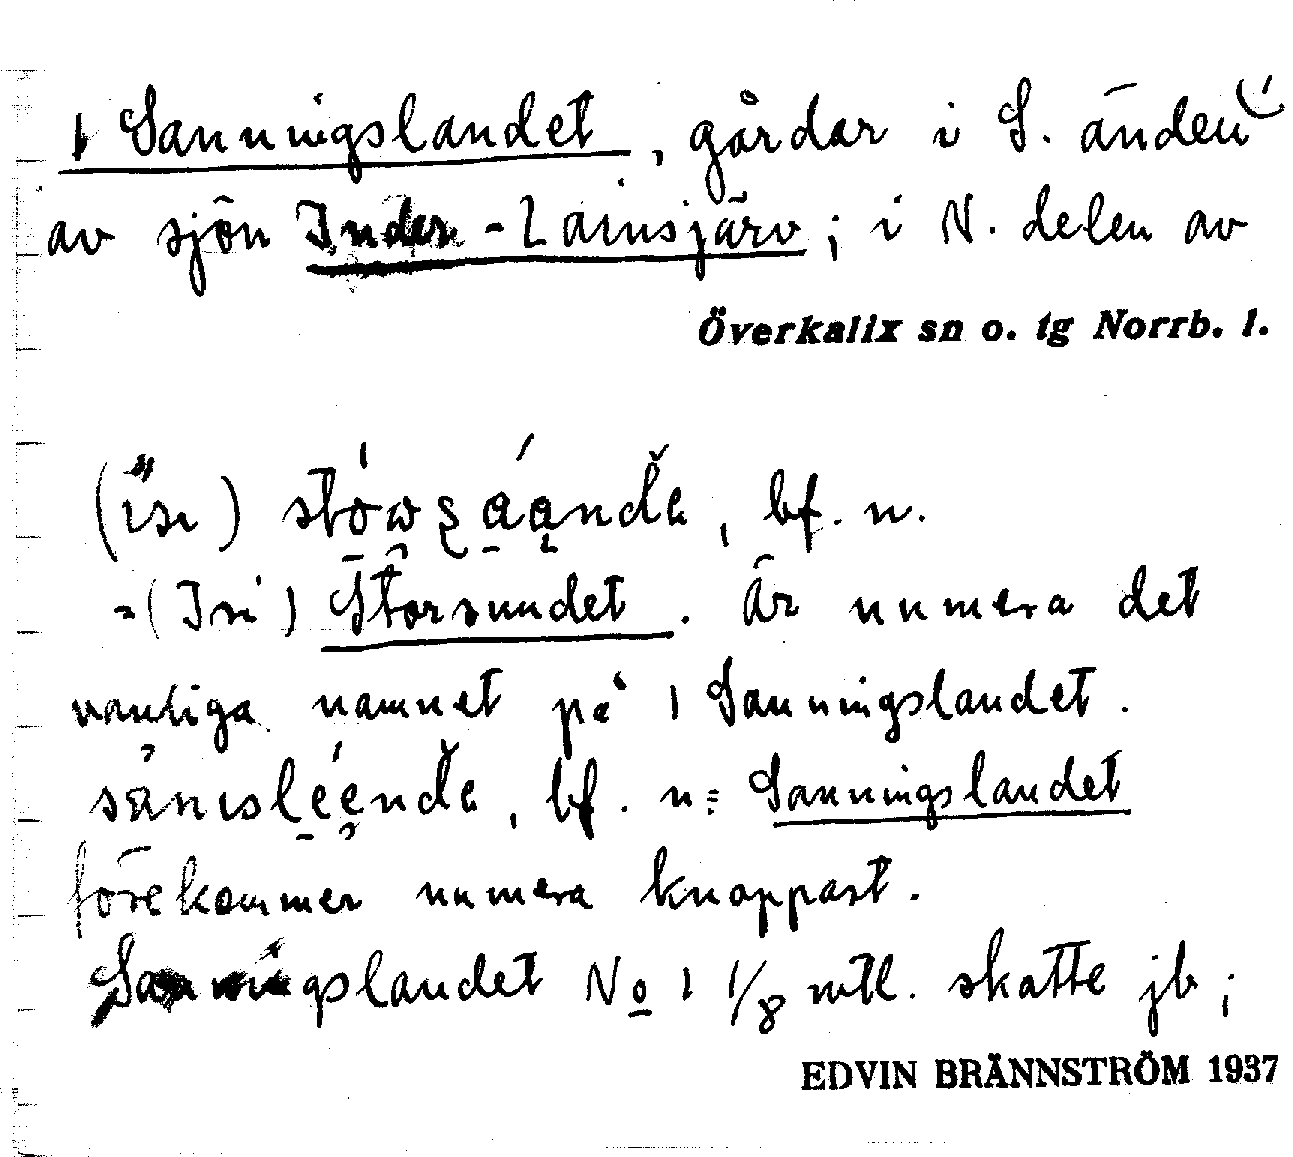 1 Sanningslandet, gårdar i S. änden
av sjön Inder-Lainsjärv; i N. delen av
Överkalix sn o. tg Norrb. l.
bf. n.
=(Isi) Storsundet. Är numera det
vanliga namnet på 1 Sanningslandet.
bf. n = Sanningslandet
förekommer numera knappast.
Sanningslandet No 1 1/8 mtl. skatte jb;
EDVIN BRÄNNSTRÖM 1937